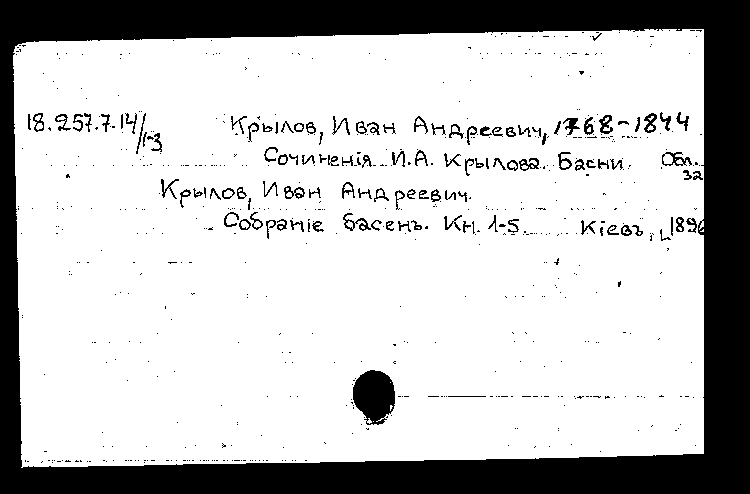 18.257.7.14/1-3 Крылов, Иван Андреевич, 1768-1844
Сочиненія И.А. Крылова. Басни. Обл.
за
Крылов, Иван Андреевич.
Собраніе басенъ. Кн. 1-5. Кіевъ, 1896